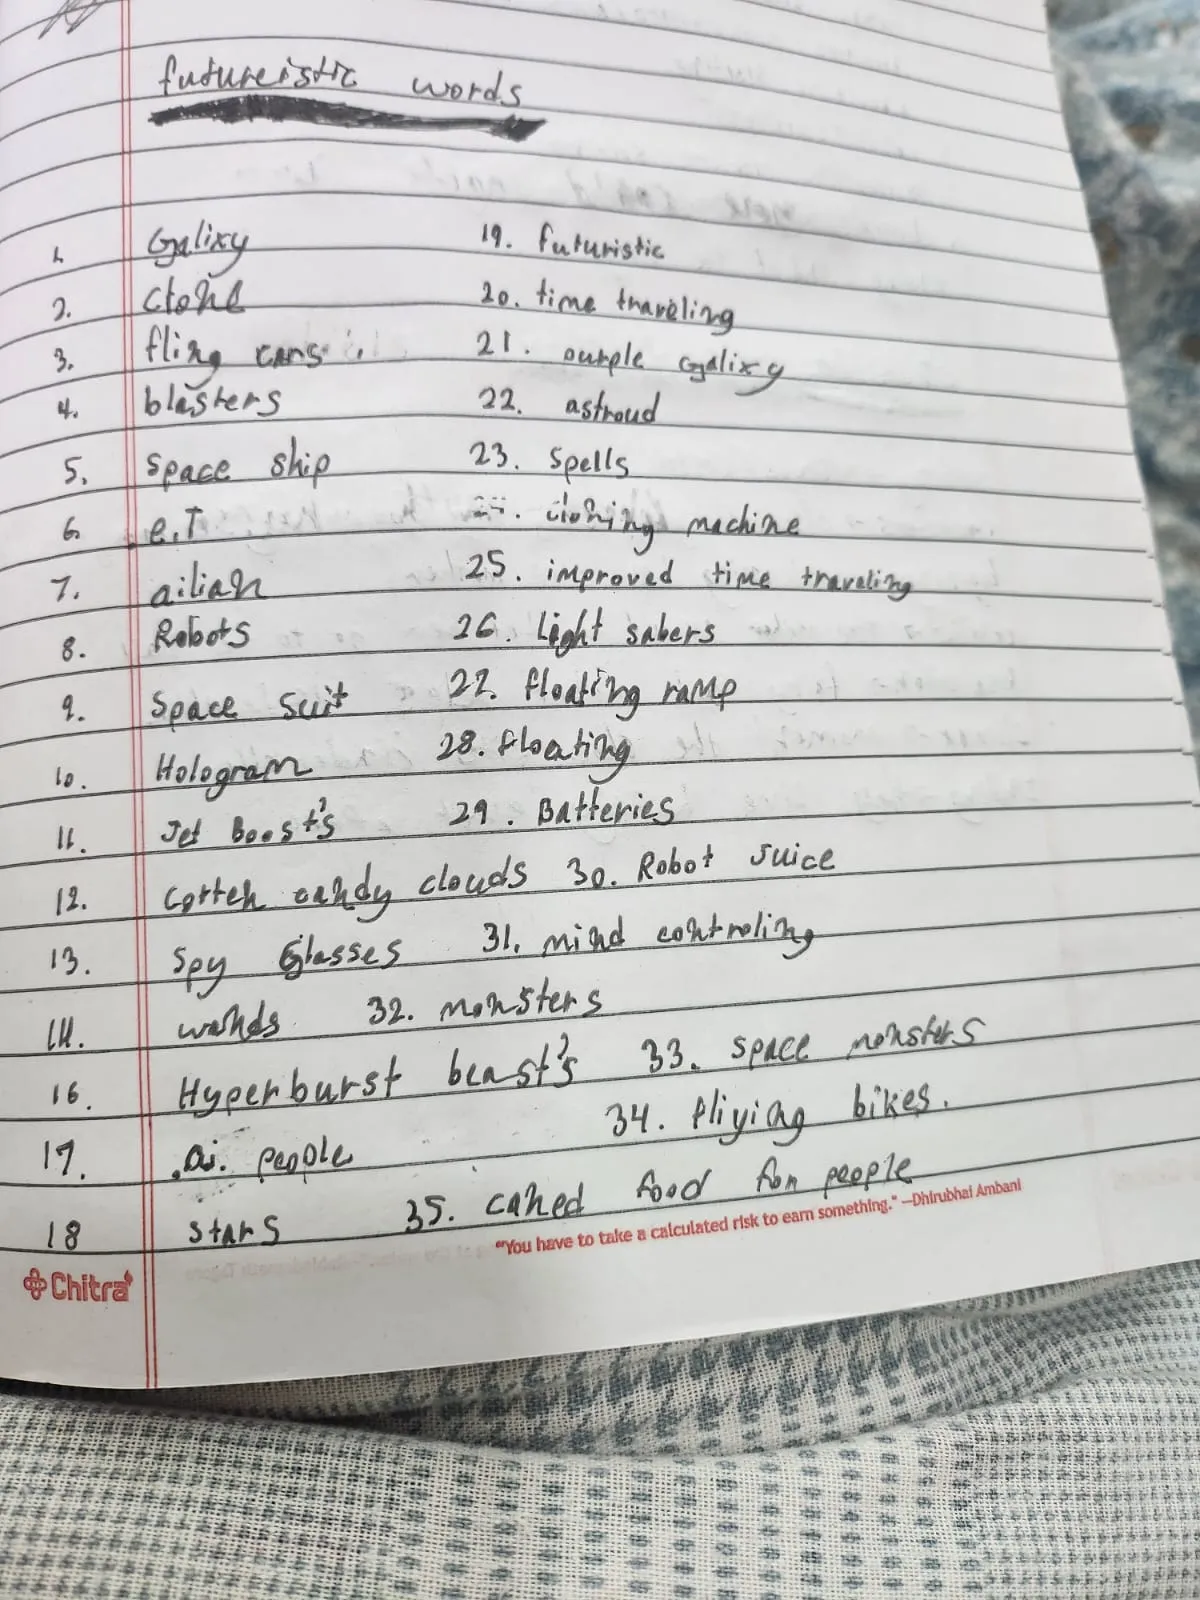 futureistic words
1. Galixy 19. futuristic
2. clone 20. time traveling
3. fling cars 21. purple galixy
4. blasters 22. astroud
5. Space ship 23. Spells
6. e.T 24. cloning machine
7. ailian 25. improved time traveling
8. Robots 26. Light sabers
9. Space Suit 27. floating ramp
10. Hologram 28. floating
11. Jet Boost's 29. Batteries
12. Cotten candy clouds 30. Robot Juice
13. Spy Glasses 31. mind controling
14. wands 32. monsters
16. Hyperburst beast's 33. space monsters
17. ai. people 34. fliying bikes.
18 stars 35. caned food for people
"You have to take a calculated risk to earn something." –Dhirubhai Ambani
Chitra